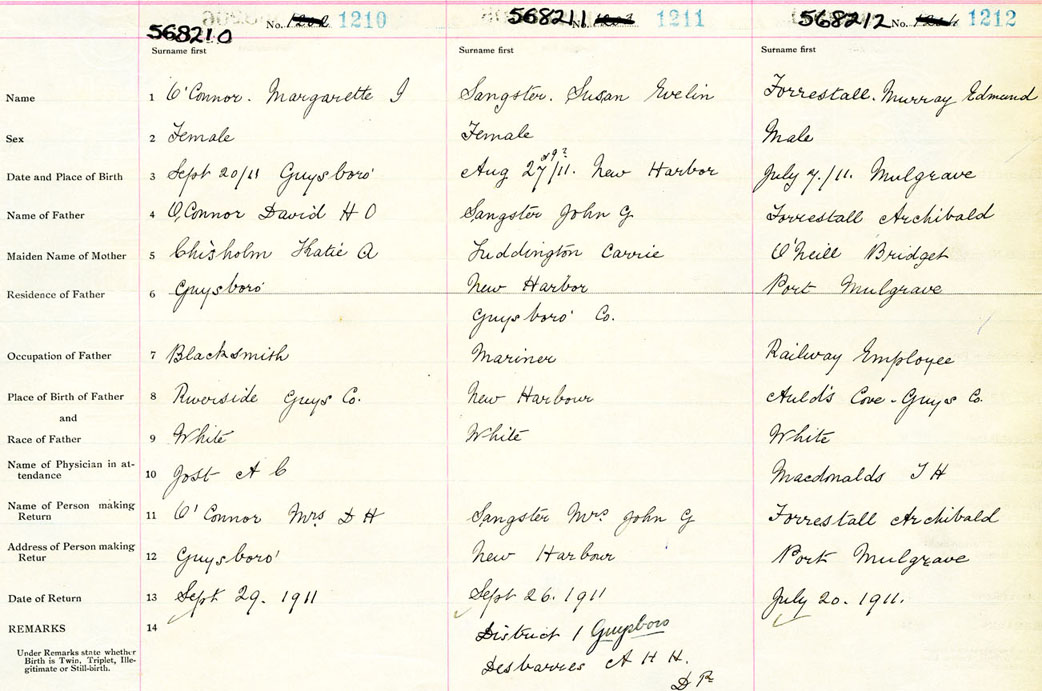 568210 No. 1210 568211 No. 1211 568212 No. 1212
Surname first Surname first Surname first
Name 1 O'Connor. Margarette J Sangster. Susan Evelin Forrestall. Murray Edmund
Sex 2 Female Female Male
29?
Date and Place of Birth 3 Sept 20/11 Guysboro' Aug 27/11. New Harbor July 7./11. Mulgrave
Name of Father 4 O,Connor David H O Sangster John G Forrestall Archibald
Maiden Name of Mother 5 Chisholm Katie A Luddington Carrie O'Neill Bridget
Residence of Father 6 Guysboro' New Harbor Port Mulgrave
Guysboro' Co.
Occupation of Father 7 Blacksmith Mariner Railway Employee
Place of Birth of Father 8 Riverside Guys Co. New Harbour Auld's Cove - Guys Co.
and
Race of Father 9 White White White
Name of Physician in at-
tendance 10 Jost A C Macdonalds J H
Name of Person making
Return 11 O'Connor Mrs D H Sangster Mrs. John G Forrestall Archibald
Address of Person making
Retur 12 Guysboro' New Harbour Port Mulgrave
Date of Return 13 Sept 29. 1911 Sept 26. 1911 July 20. 1911.
REMARKS 14 District 1 Guysboro
Under Remarks state whether
Birth is Twin, Triplet, Ille-
gitimate or Still-birth.
Desbarries A H H.
D R